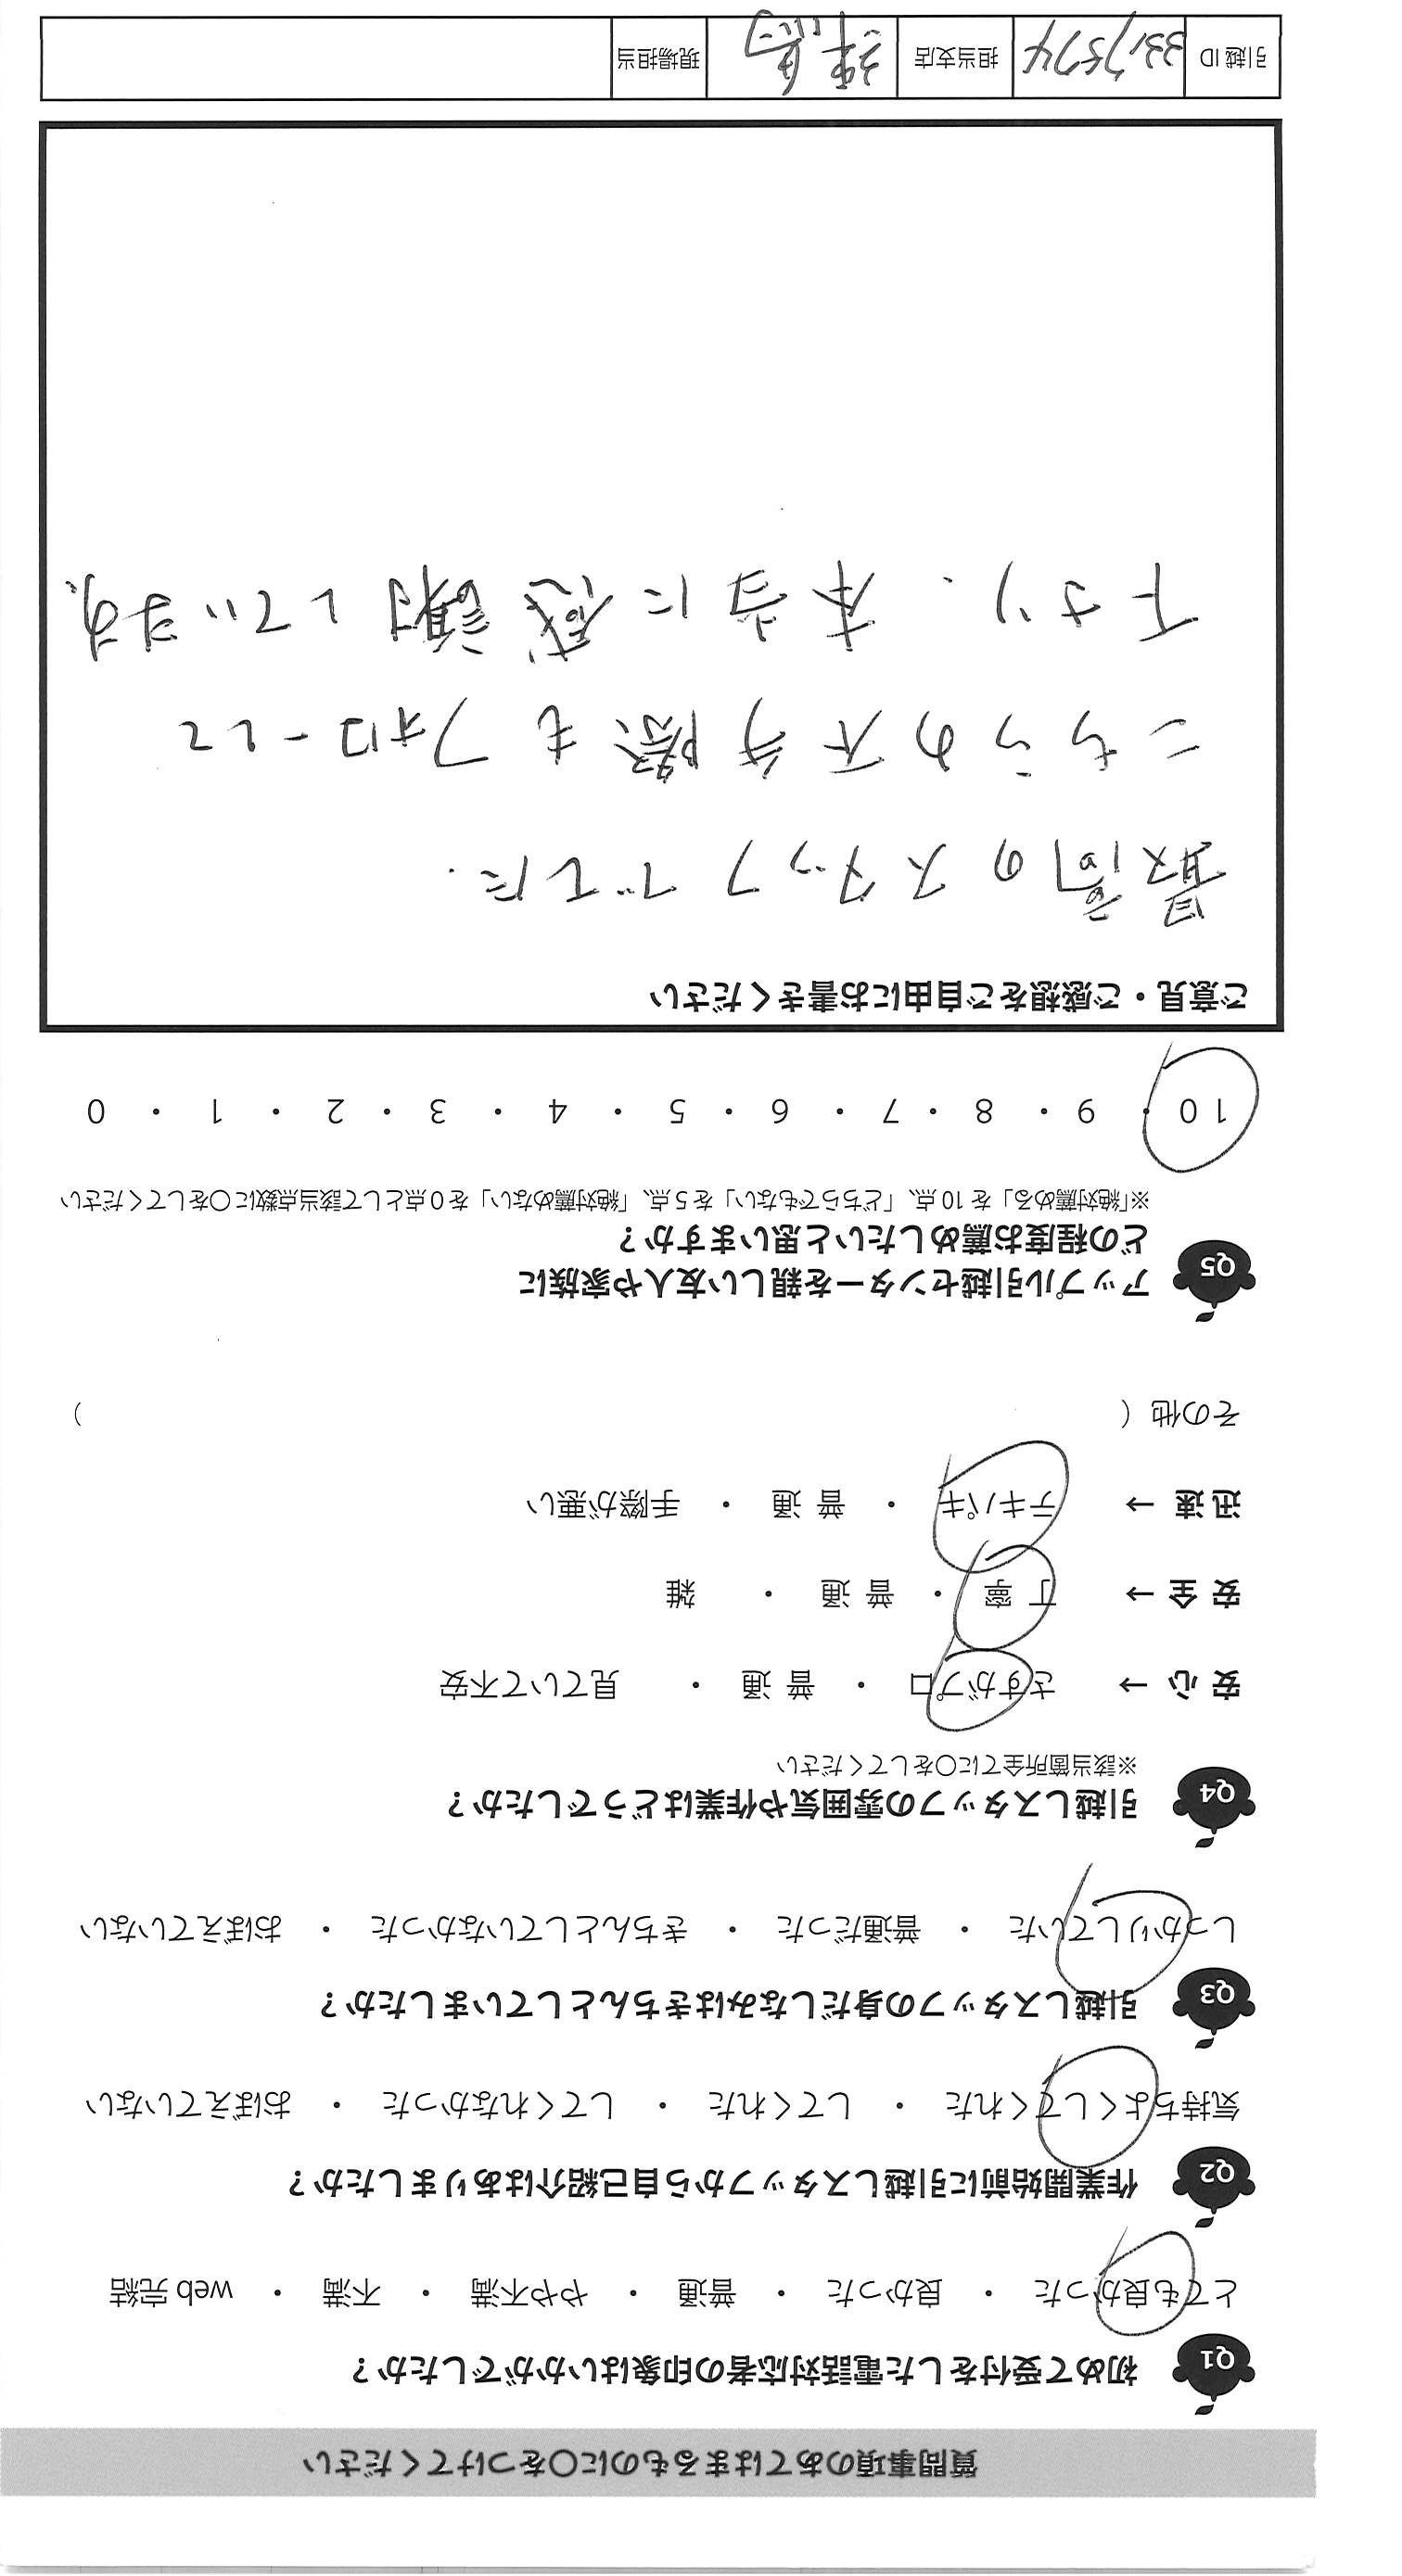 質問事項のあてはまるものに○をつけてください
Q1 初めて受付をした電話対応者の印象はいかがでしたか？
とても良かった ・ 良かった ・ 普通 ・ やや不満 ・ 不満 ・ web 完結
Q2 作業開始前に引越しスタッフから自己紹介はありましたか？
気持ちよくしてくれた ・ してくれた ・ してくれなかった ・ おぼえていない
Q3 引越しスタッフの身だしなみはきちんとしていましたか？
しっかりしていた ・ 普通だった ・ きちんとしていなかった ・ おぼえていない
Q4 引越しスタッフの雰囲気や作業はどうでしたか？
※該当箇所全てに○をしてください
安 心 → さすがプロ ・ 普 通 ・ 見ていて不安
安 全 → 丁 寧 ・ 普 通 ・ 雑
迅 速 → テキパキ ・ 普 通 ・ 手際が悪い
その他（ ）
Q5 アップル引越センターを親しい友人や家族に
どの程度お薦めしたいと思いますか？
※「絶対薦める」を 10 点、「どちらでもない」を 5 点、「絶対薦めない」を 0 点として該当点数に○をしてください
10 ・ 9 ・ 8 ・ 7 ・ 6 ・ 5 ・ 4 ・ 3 ・ 2 ・ 1 ・ 0
ご意見・ご感想をご自由にお書きください
最高のスタッフでした.
こちらの不手際もフォローして
下さり、本当に感謝しています。
引越 ID 3317574 担当支店 練馬 現場担当